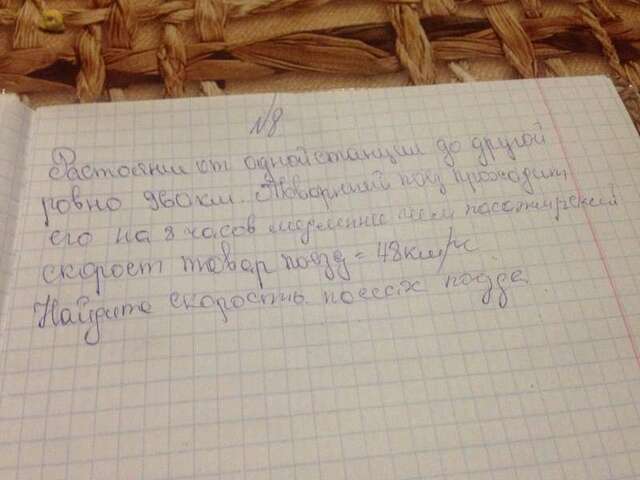 №8
Растоянии от одной станции до другой
ровно 960 км. Товарний поезд проходит
его на 8 часов медленнее чем пассажирский
скорост товар поезд = 48 км/ч.
Найдите скорость пассаж поезда.